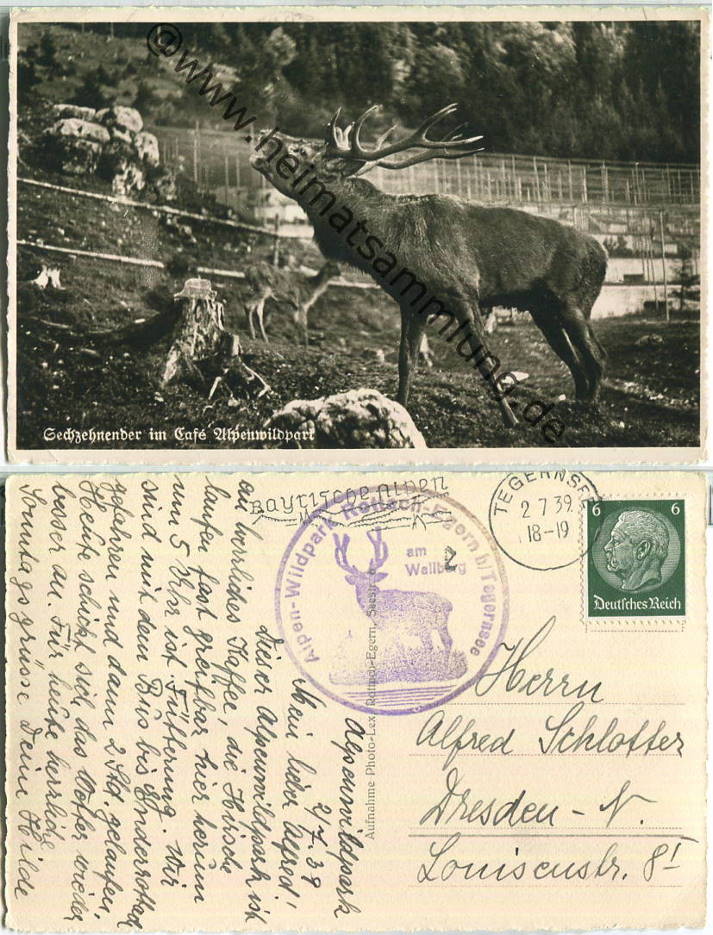 ©www.heimatsammlung.de
Sechzehnender im Café Alpenwildpark
Bayrische Alpen
TEGERNSEE
2 7 39
18-19
6 6
Deutsches Reich
Alpen-Wildpark Rottach-Egern b/Tegernsee
am
Wallberg
2
Aufnahme Photo-Lex, Rottach-Egern, Seestr.
Herrn
Alfred Schlotter
Dresden - N.
Louisenstr. 81
Alpenwildpark
2/7.39
Mein lieber Alfred!
Dieser Alpenwildpark ist
ein herrliches Kaffee, die Hirsche
laufen fast greifbar hier herum
um 5 Uhr ist Fütterung. Wir
sind mit dem Bus bis
gefahren und dann 2 Std. gelaufen.
Heute schickt sich das Wetter wieder
besser an. Für heute herrliche
Sonntagsgrüsse Deine Hilde